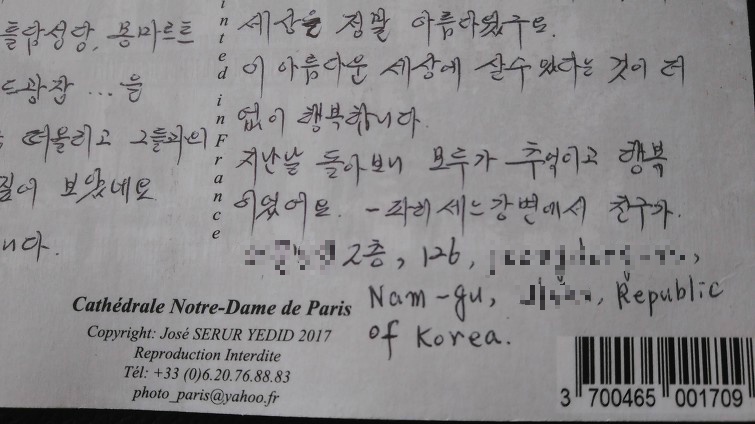 틀담성당, 몽마르트
드광장 ... 을
떠올리고 그들과의
짚어 보았네요
니다.
inted in France
세상은 정말 아름다웠구요.
이 아름다운 세상에 살수 있다는 것이 더
없이 행복합니다.
지난날 돌아보니 모두가 추억이고 행복
이었어요. - 파리 세느강변에서 친구가.
2층, 126,
Nam-gu, Republic
of Korea.
Cathédrale Notre-Dame de Paris
Copyright: José SERUR YEDID 2017
Reproduction Interdite
Tél: +33 (0)6.20.76.88.83
photo_paris@yahoo.fr
3 700465 001709